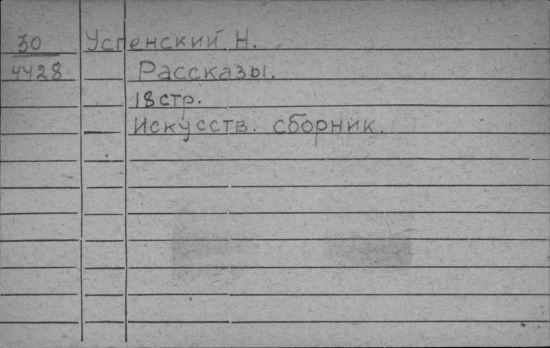 30 Успенский Н.
4428 Рассказы.
18 стр.
Искусств. сборник.